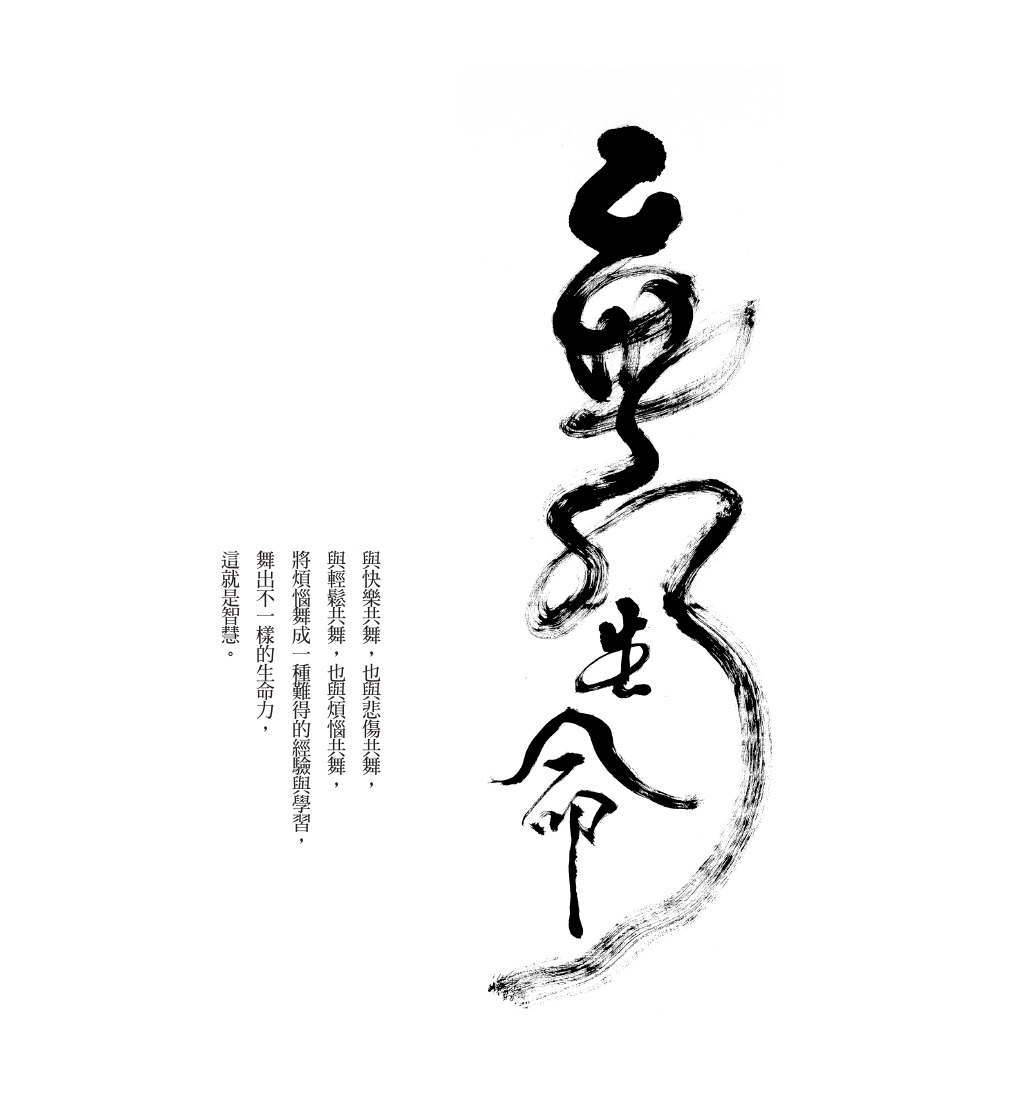 舞生命
與快樂共舞，也與悲傷共舞，
與輕鬆共舞，也與煩惱共舞，
將煩惱舞成一種難得的經驗與學習，
舞出不一樣的生命力，
這就是智慧。